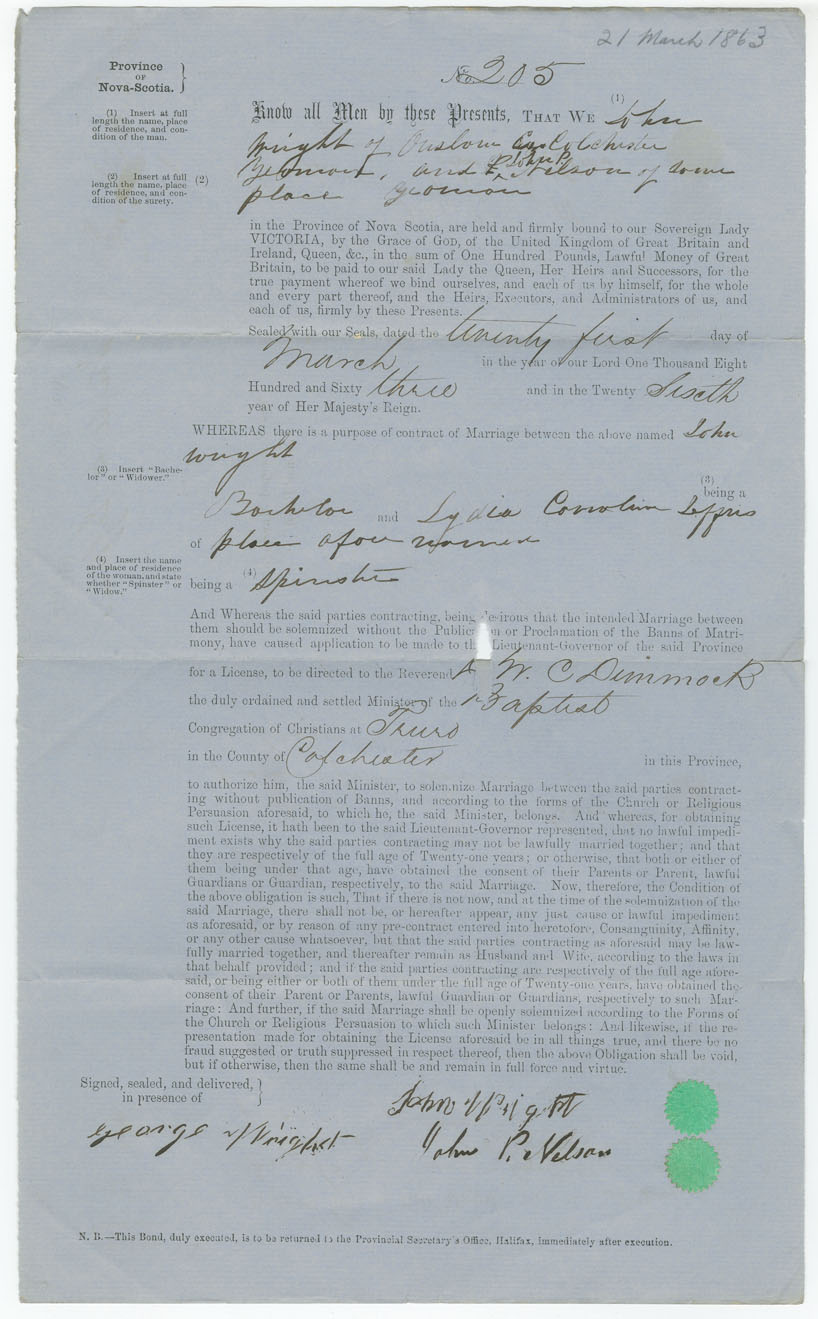 21 March 1863
Province
OF
Nova-Scotia.
No. 205
(1) Insert at full
length the name, place
of residence, and con-
dition of the man.
Know all Men by these Presents, THAT WE (1) John
Wright of Onslow Co Colchester
(2) Insert at full
length the name, place
of residence, and con-
dition of the surety.
(2)
Yeoman, and John P. Nelson of same
place Yeoman
in the Province of Nova Scotia, are held and firmly bound to our Sovereign Lady
VICTORIA, by the Grace of GOD, of the United Kingdom of Great Britain and
Ireland, Queen, &c., in the sum of One Hundred Pounds, Lawful Money of Great
Britain, to be paid to our said Lady the Queen, Her Heirs and Successors, for the
true payment whereof we bind ourselves, and each of us by himself, for the whole
and every part thereof, and the Heirs, Executors, and Administrators of us, and
each of us, firmly by these Presents.
Sealed with our Seals, dated the twenty first day of
March in the year of our Lord One Thousand Eight
Hundred and Sixty three and in the Twenty Sixth
year of Her Majesty's Reign.
WHEREAS there is a purpose of contract of Marriage between the above named John
Wright
(3) Insert "Bache-
lor" or "Widower."
(3)
being a
Bachelor and Lydia
of place
(4) Insert the name
and place of residence
of the woman, and state
whether "Spinster" or
"Widow."
being a (4) Spinster
And Whereas the said parties contracting, being desirous that the intended Marriage between
them should be solemnized without the Publication or Proclamation of the Banns of Matri-
mony, have caused application to be made to the Lieutenant-Governor of the said Province
for a License, to be directed to the Reverend W. C Dimmock
the duly ordained and settled Minister of the Baptist
Congregation of Christians at Truro
in the County of Colchester in this Province,
to authorize him, the said Minister, to solemnize Marriage between the said parties contract-
ing without publication of Banns, and according to the forms of the Church or Religious
Persuasion aforesaid, to which he, the said Minister, belongs. And whereas, for obtaining
such License, it hath been to the said Lieutenant-Governor represented, that no lawful impedi-
ment exists why the said parties contracting may not be lawfully married together; and that
they are respectively of the full age of Twenty-one years; or otherwise, that both or either of
them being under that age, have obtained the consent of their Parents or Parent, lawful
Guardians or Guardian, respectively, to the said Marriage. Now, therefore, the Condition of
the above obligation is such, That if there is not now, and at the time of the solemnization of the
said Marriage, there shall not be, or hereafter appear, any just cause or lawful impediment
as aforesaid, or by reason of any pre-contract entered into heretofore, Consanguinity, Affinity,
or any other cause whatsoever, but that the said parties contracting as aforesaid may be law-
fully married together, and thereafter remain as Husband and Wife, according to the laws in
that behalf provided; and if the said parties contracting are respectively of the full age afore-
said, or being either or both of them under the full age of Twenty-one years, have obtained the
consent of their Parent or Parents, lawful Guardian or Guardians, respectively to such Mar-
riage: And further, if the said Marriage shall be openly solemnized according to the Forms of
the Church or Religious Persuasion to which such Minister belongs: And likewise, if the re-
presentation made for obtaining the License aforesaid be in all things true, and there be no
fraud suggested or truth suppressed in respect thereof, then the above Obligation shall be void,
but if otherwise, then the same shall be and remain in full force and virtue.
Signed, sealed, and delivered,
in presence of
John Wright
George Wright
John P. Nelson
N. B.—This Bond, duly executed, is to be returned to the Provincial Secretary's Office, Halifax, immediately after execution.